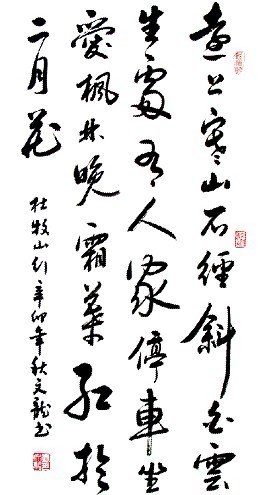 遠上寒山石經斜白雲
生處有人家停車坐
愛楓林晚霜葉紅於
二月花
杜牧山行辛卯年秋文龍书